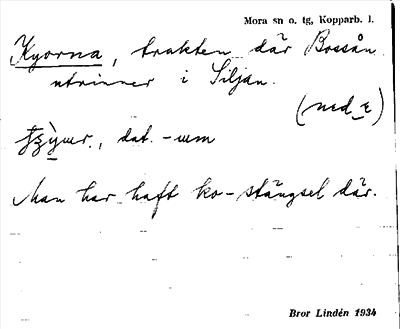 Mora sn o. tg, Kopparb. l.
Kyorna, trakten där Bossån
utrinner i Siljan.
(med
dat. -um
Man har haft ko-stängsel där.
Bror Lindén 1934